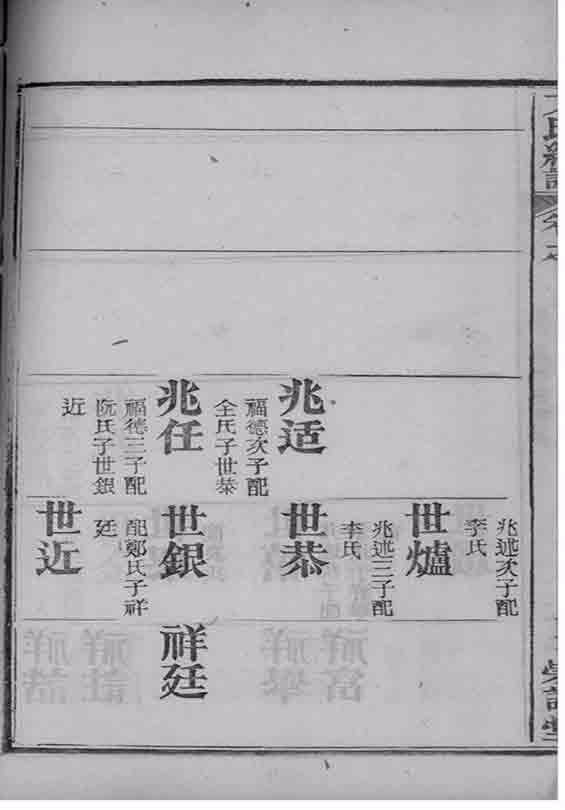 兆适
福德次子配
全氏子世恭
兆任
福德三子配
阮氏子世銀
近
兆述次子配
李氏
世爐
兆述三子配
李氏
世恭
世銀
配鄭氏子祥
廷
世近
祥廷